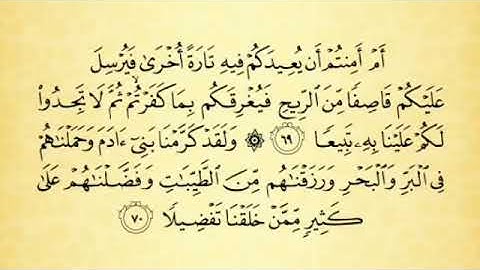 أَمْ أَمِنتُمْ أَن يُعِيدَكُمْ فِيهِ تَارَةً أُخْرَىٰ فَيُرْسِلَ
عَلَيْكُمْ قَاصِفًا مِّنَ ٱلرِّيحِ فَيُغْرِقَكُم بِمَا كَفَرْتُمْ ثُمَّ لَا تَجِدُوا۟
لَكُمْ عَلَيْنَا بِهِۦ تَبِيعًا ٦٩ ۞ وَلَقَدْ كَرَّمْنَا بَنِىٓ ءَادَمَ وَحَمَلْنَٰهُمْ
فِى ٱلْبَرِّ وَٱلْبَحْرِ وَرَزَقْنَٰهُم مِّنَ ٱلطَّيِّبَٰتِ وَفَضَّلْنَٰهُمْ عَلَىٰ
كَثِيرٍ مِّمَّنْ خَلَقْنَا تَفْضِيلًا ٧٠